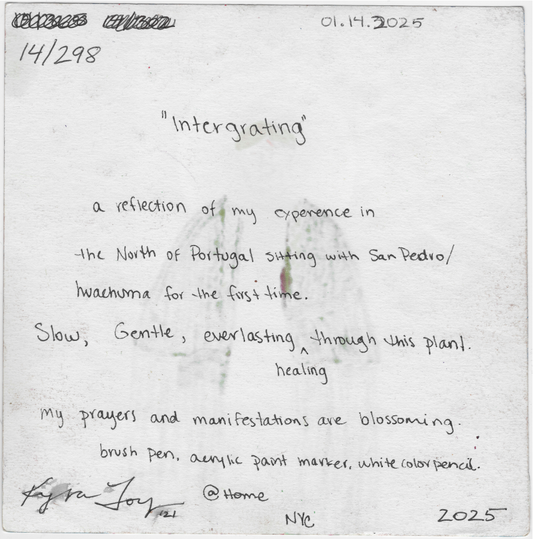 01.14.2025
14/298
"Intergrating"
a reflection of my experence in
the North of Portugal sitting with San Pedro/
hwachuma for the first time.
Slow, Gentle, everlasting ^ through this plant.
healing
my prayers and manifestations are blossoming.
brush pen. acrylic paint marker, white color pencil.
@Home
NYC
2025